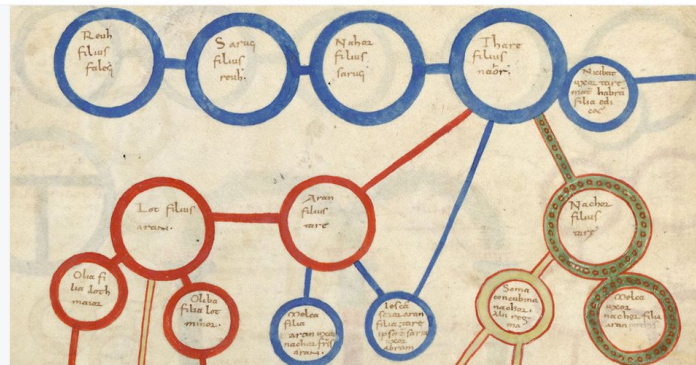 Reuh
filius
falec
Saruc
filius
reuh.
Nahor
filius
saruc
Thare
filius
naor.
uxor tare
mat habrā
filia
Lot filius
aram.
Aran
filius
tare
Nachor
filius
tare
Olia fi
lia loth
maior
Oleba
filia lot
minor.
Melca
filia
aran uxor
nachor fris
Iesca
filia tare
ipsa ē sara
uxor
abram
Soma
concubina
nachor
Melca
uxor
nachor filia
aran